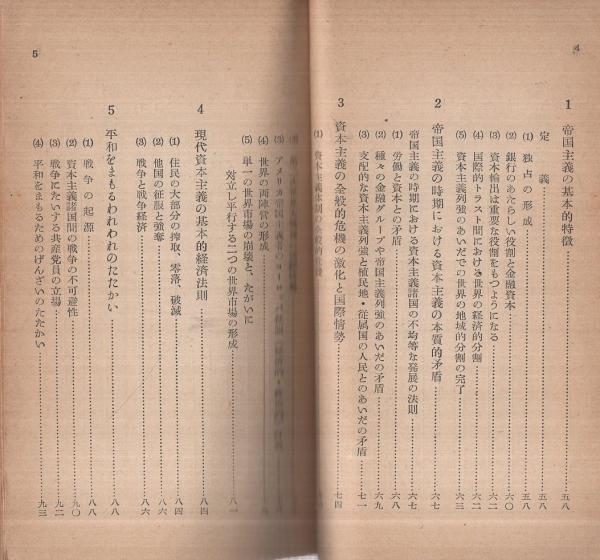 4
1 帝国主義の基本的特徴……五八
定義……五八
(1) 独占の形成……五八
(2) 銀行のあたらしい役割と金融資本……六〇
(3) 資本輸出は重要な役割をもつようになる……六二
(4) 国際的トラスト間における世界の経済的分割……六二
(5) 資本主義列強のあいだでの世界の地域的分割の完了……六三
2 帝国主義の時期における資本主義の本質的矛盾……六七
帝国主義の時期における資本主義諸国の不均等な発展の法則……六七
(1) 労働と資本との矛盾……六八
(2) 種々の金融グループや帝国主義列強のあいだの矛盾……六九
(3) 支配的な資本主義列強と植民地・従属国の人民とのあいだの矛盾……七一
3 資本主義の全般的危機の激化と国際情勢……七四
(1) 資本主義体制の
(3) アメリカ帝国主義者の
(4) 世界の両陣営の形成
(5) 単一の世界市場の崩壊と、たがいに
対立し平行する二つの世界市場の形成……八一
4 現代資本主義の基本的経済法則……八四
(1) 住民の大部分の搾取、零落、破滅……八四
(2) 他国の征服と強奪……八六
(3) 戦争と戦争経済……八六
5 平和をまもるわれわれのたたかい……八八
(1) 戦争の起源……八八
(2) 資本主義諸国間の戦争の不可避性……九〇
(3) 戦争にたいする共産党員の立場……九二
(4) 平和をまもるためのげんざいのたたかい……九三
5